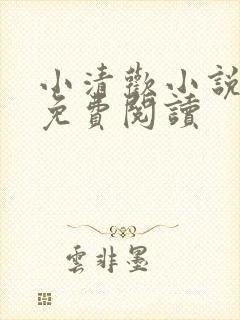 小清歡小說
免費閱讀
雲非墨